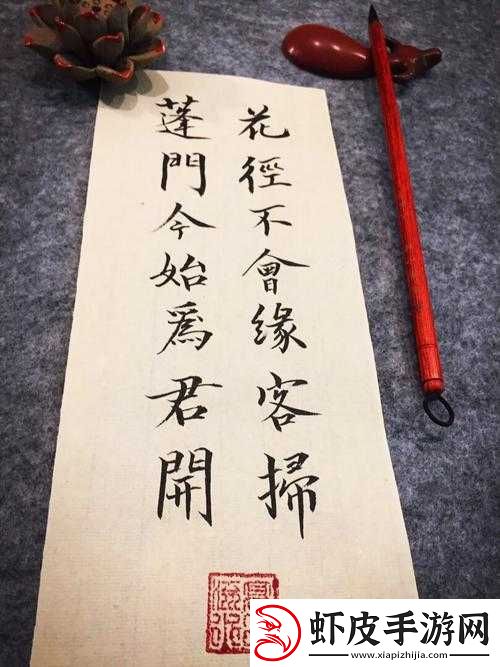 花徑不會緣客掃
蓬門今始爲君開
虾皮手游网
www.xiapizhijia.com